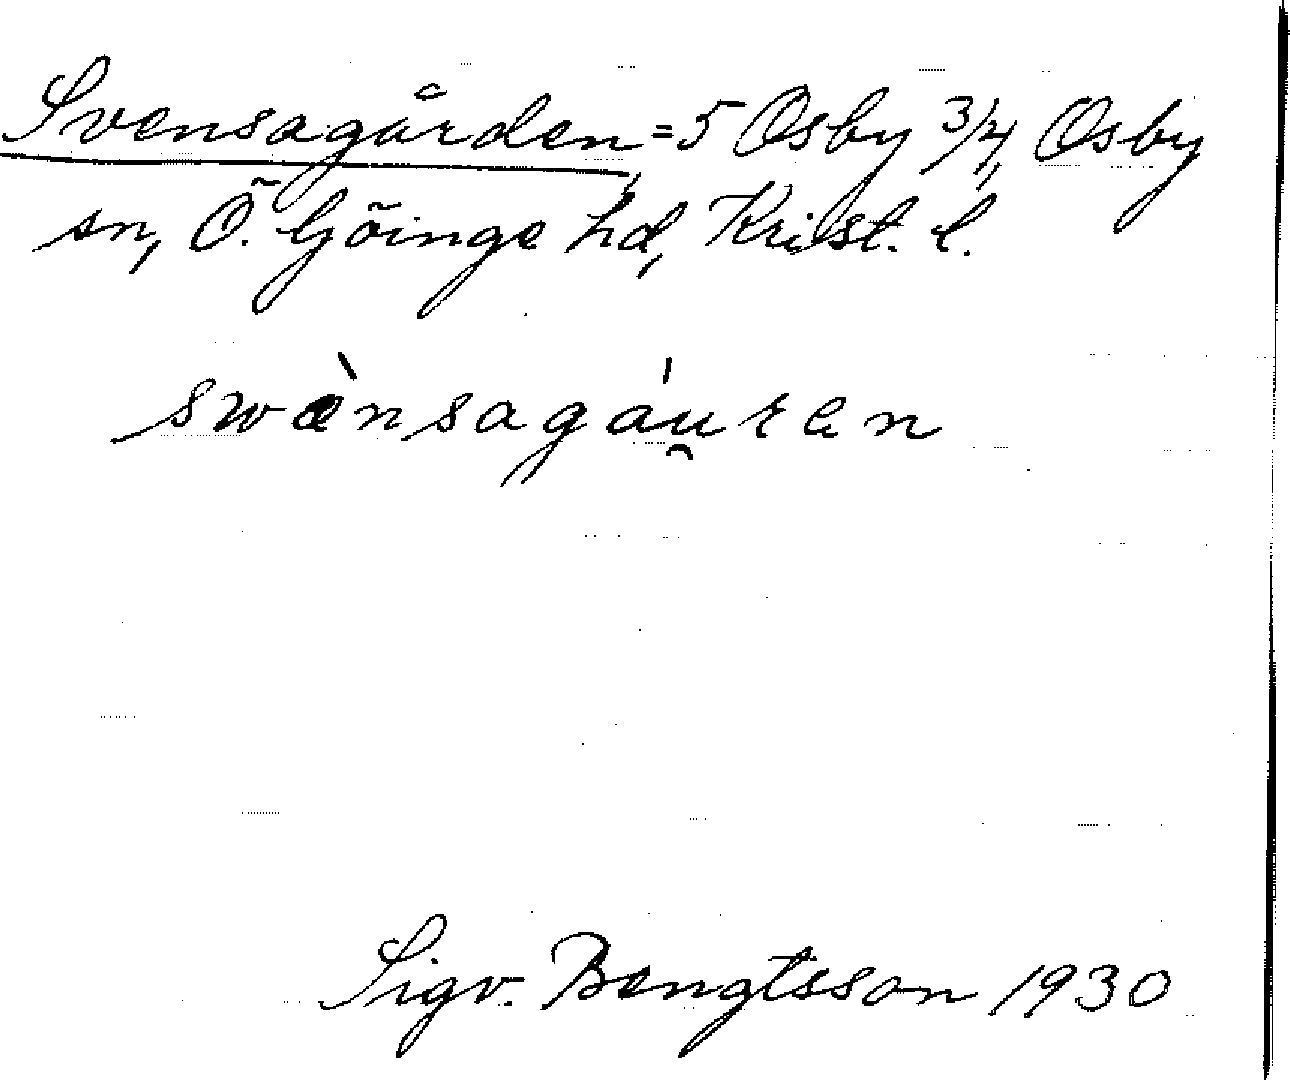 Svensagården = 5 Osby 3/4, Osby
sn, Ö. Göinge hd, Krist. l.
swænsagáu̯ren
Sigv. Bengtsson 1930